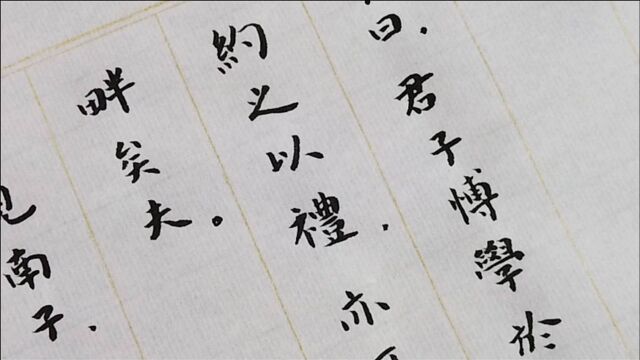 曰，君子博學於
約之以禮，亦
畔矣夫。
見南子，